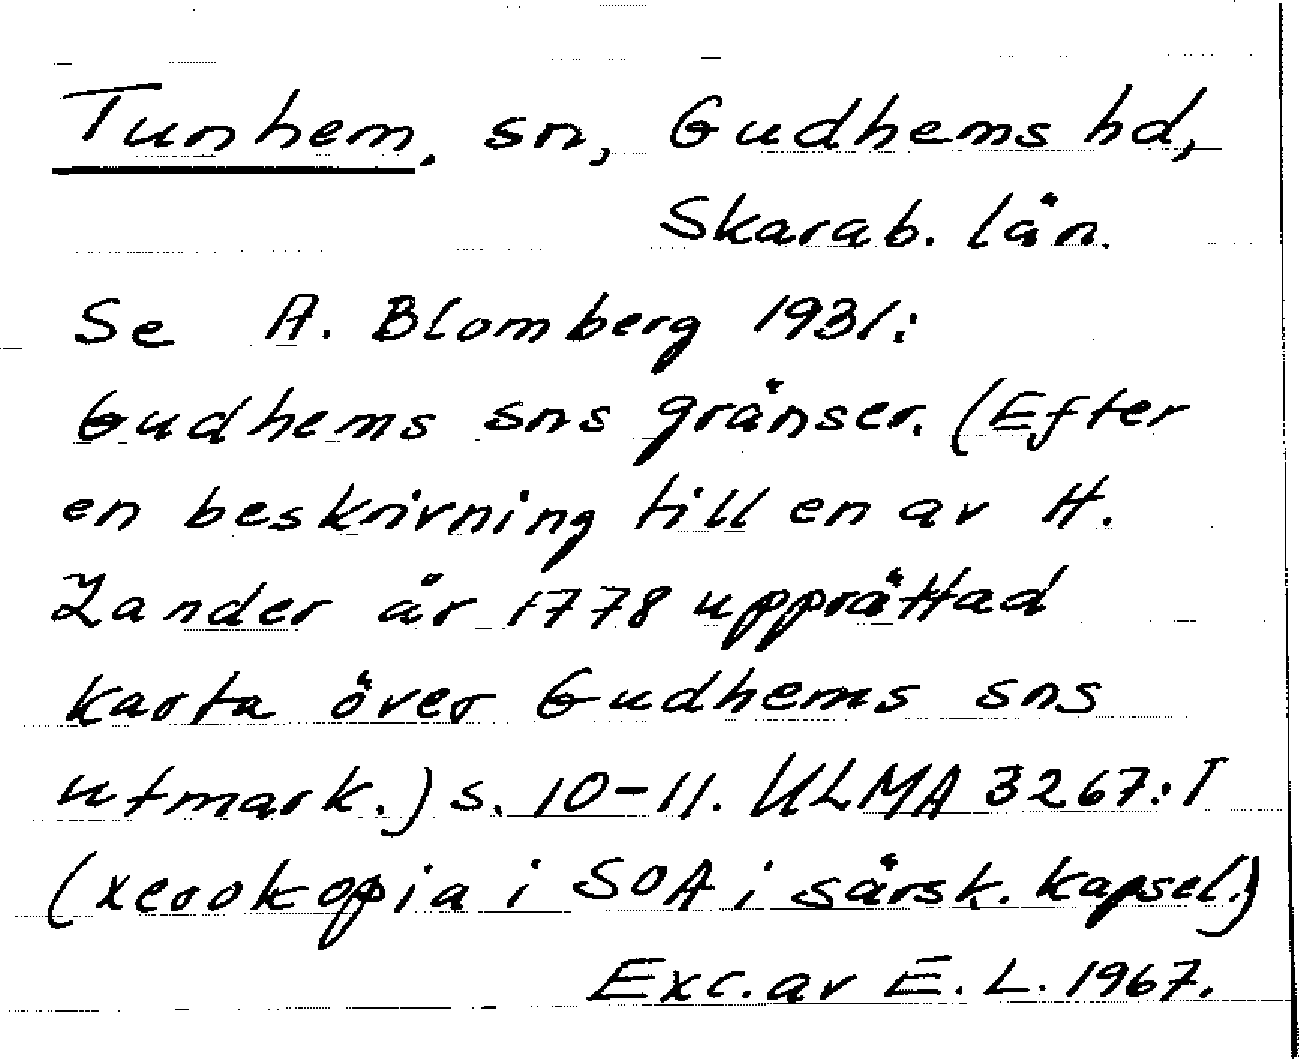 Tunhem. sn, Gudhems hd,
Skarab. län.
Se A. Blomberg 1931:
Gudhems sns gränser. (Efter
en beskrivning till en av H.
Zander år 1778 upprättad
karta över Gudhems sns
utmark.) s. 10-11. ULMA 3267:1
(xerokopia i SOA i särsk. kapsel.)
Exc. av E. L. 1967.